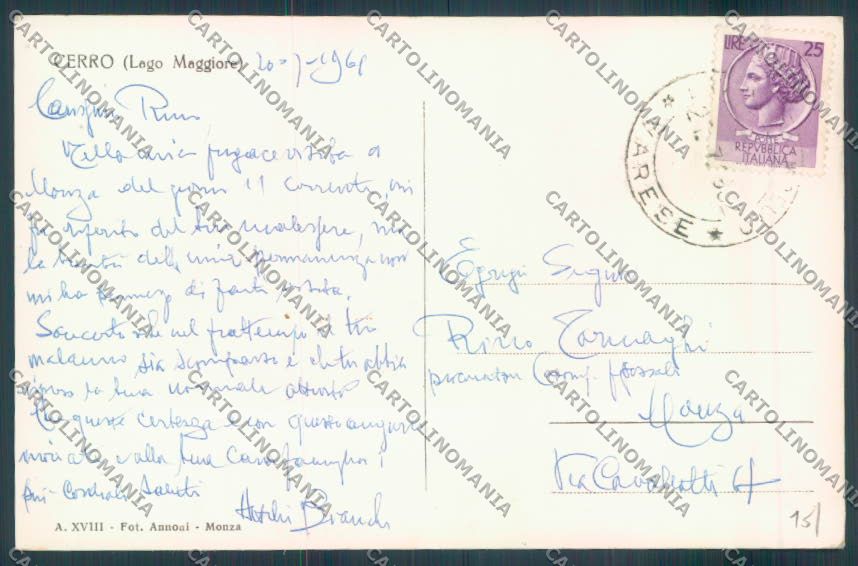 CERRO (Lago Maggiore) 20-7-1961
Carissimo Rino
Nella mia fugace visita a
Monza del giorno 11 corrente, mi
fu riferito del tuo malessere, ma
la brevità della mia permanenza non
mi ha permesso di farti visita.
Son certo che nel frattempo il tuo
malanno sia scomparso e che tu abbia
ripreso la tua normale attività
In questa certezza e con questo augurio
inviati e alla tua cara famiglia i
più cordiali saluti
Bianchi
A. XVIII - Fot. Annoni - Monza
LIRE 25
REPVBBLICA
ITALIANA
VARESE
Egregio Signor
Rino
Monza
Via Cavallotti
15/
CARTOLINOMANIA